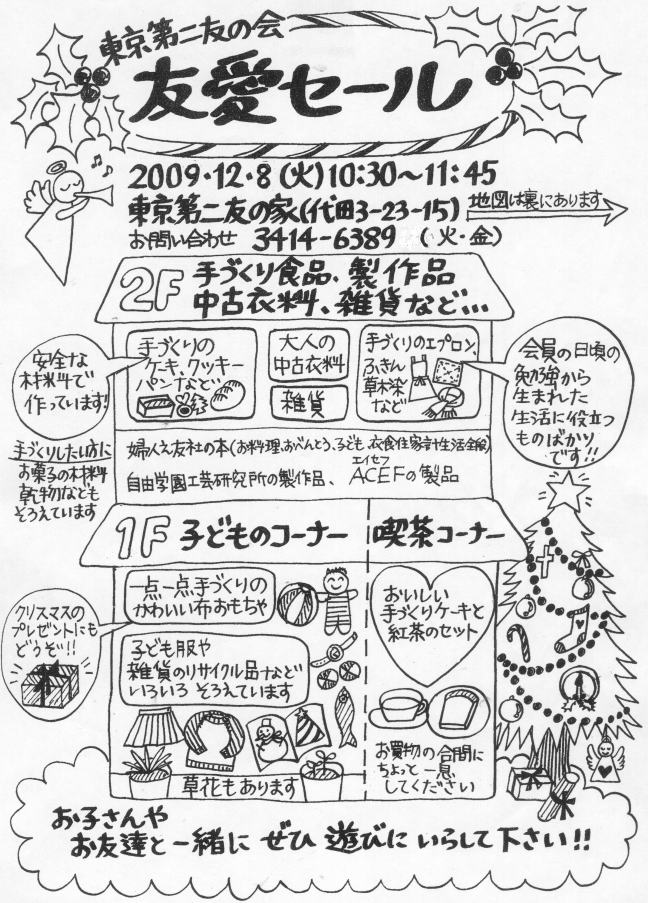 東京第二友の会
友愛セール
2009・12・8(火)10:30〜11:45
東京第二友の家(代田3-23-15)
地図は裏にあります
お問い合わせ 3414-6389 (火・金)
2F 手づくり食品、製作品
中古衣料、雑貨など...
安全な
材料で
作っています!
手づくりの
ケーキ、クッキー
パンなど
大人の
中古衣料
雑貨
手づくりのエプロン、
ふきん
草木染
など
会員の日頃の
勉強から
生まれた
生活に役立つ
ものばかり
です!!
手づくりしたい方に
お菓子の材料
乾物なども
そろえています
婦人之友社の本(お料理、おべんとう、子ども、衣食住家計生活全般)
自由学園工芸研究所の製作品、
エイセフ
ACEFの製品
1F 子どものコーナー
喫茶コーナー
一点一点手づくりの
かわいい布おもちゃ
クリスマスの
プレゼントにも
どうぞ!!
子ども服や
雑貨のリサイクル品など
いろいろ そろえています
おいしい
手づくりケーキと
紅茶のセット
草花もあります
お買物の合間に
ちょっと一息
してください
お子さんや
お友達と一緒に ぜひ 遊びに いらして下さい!!